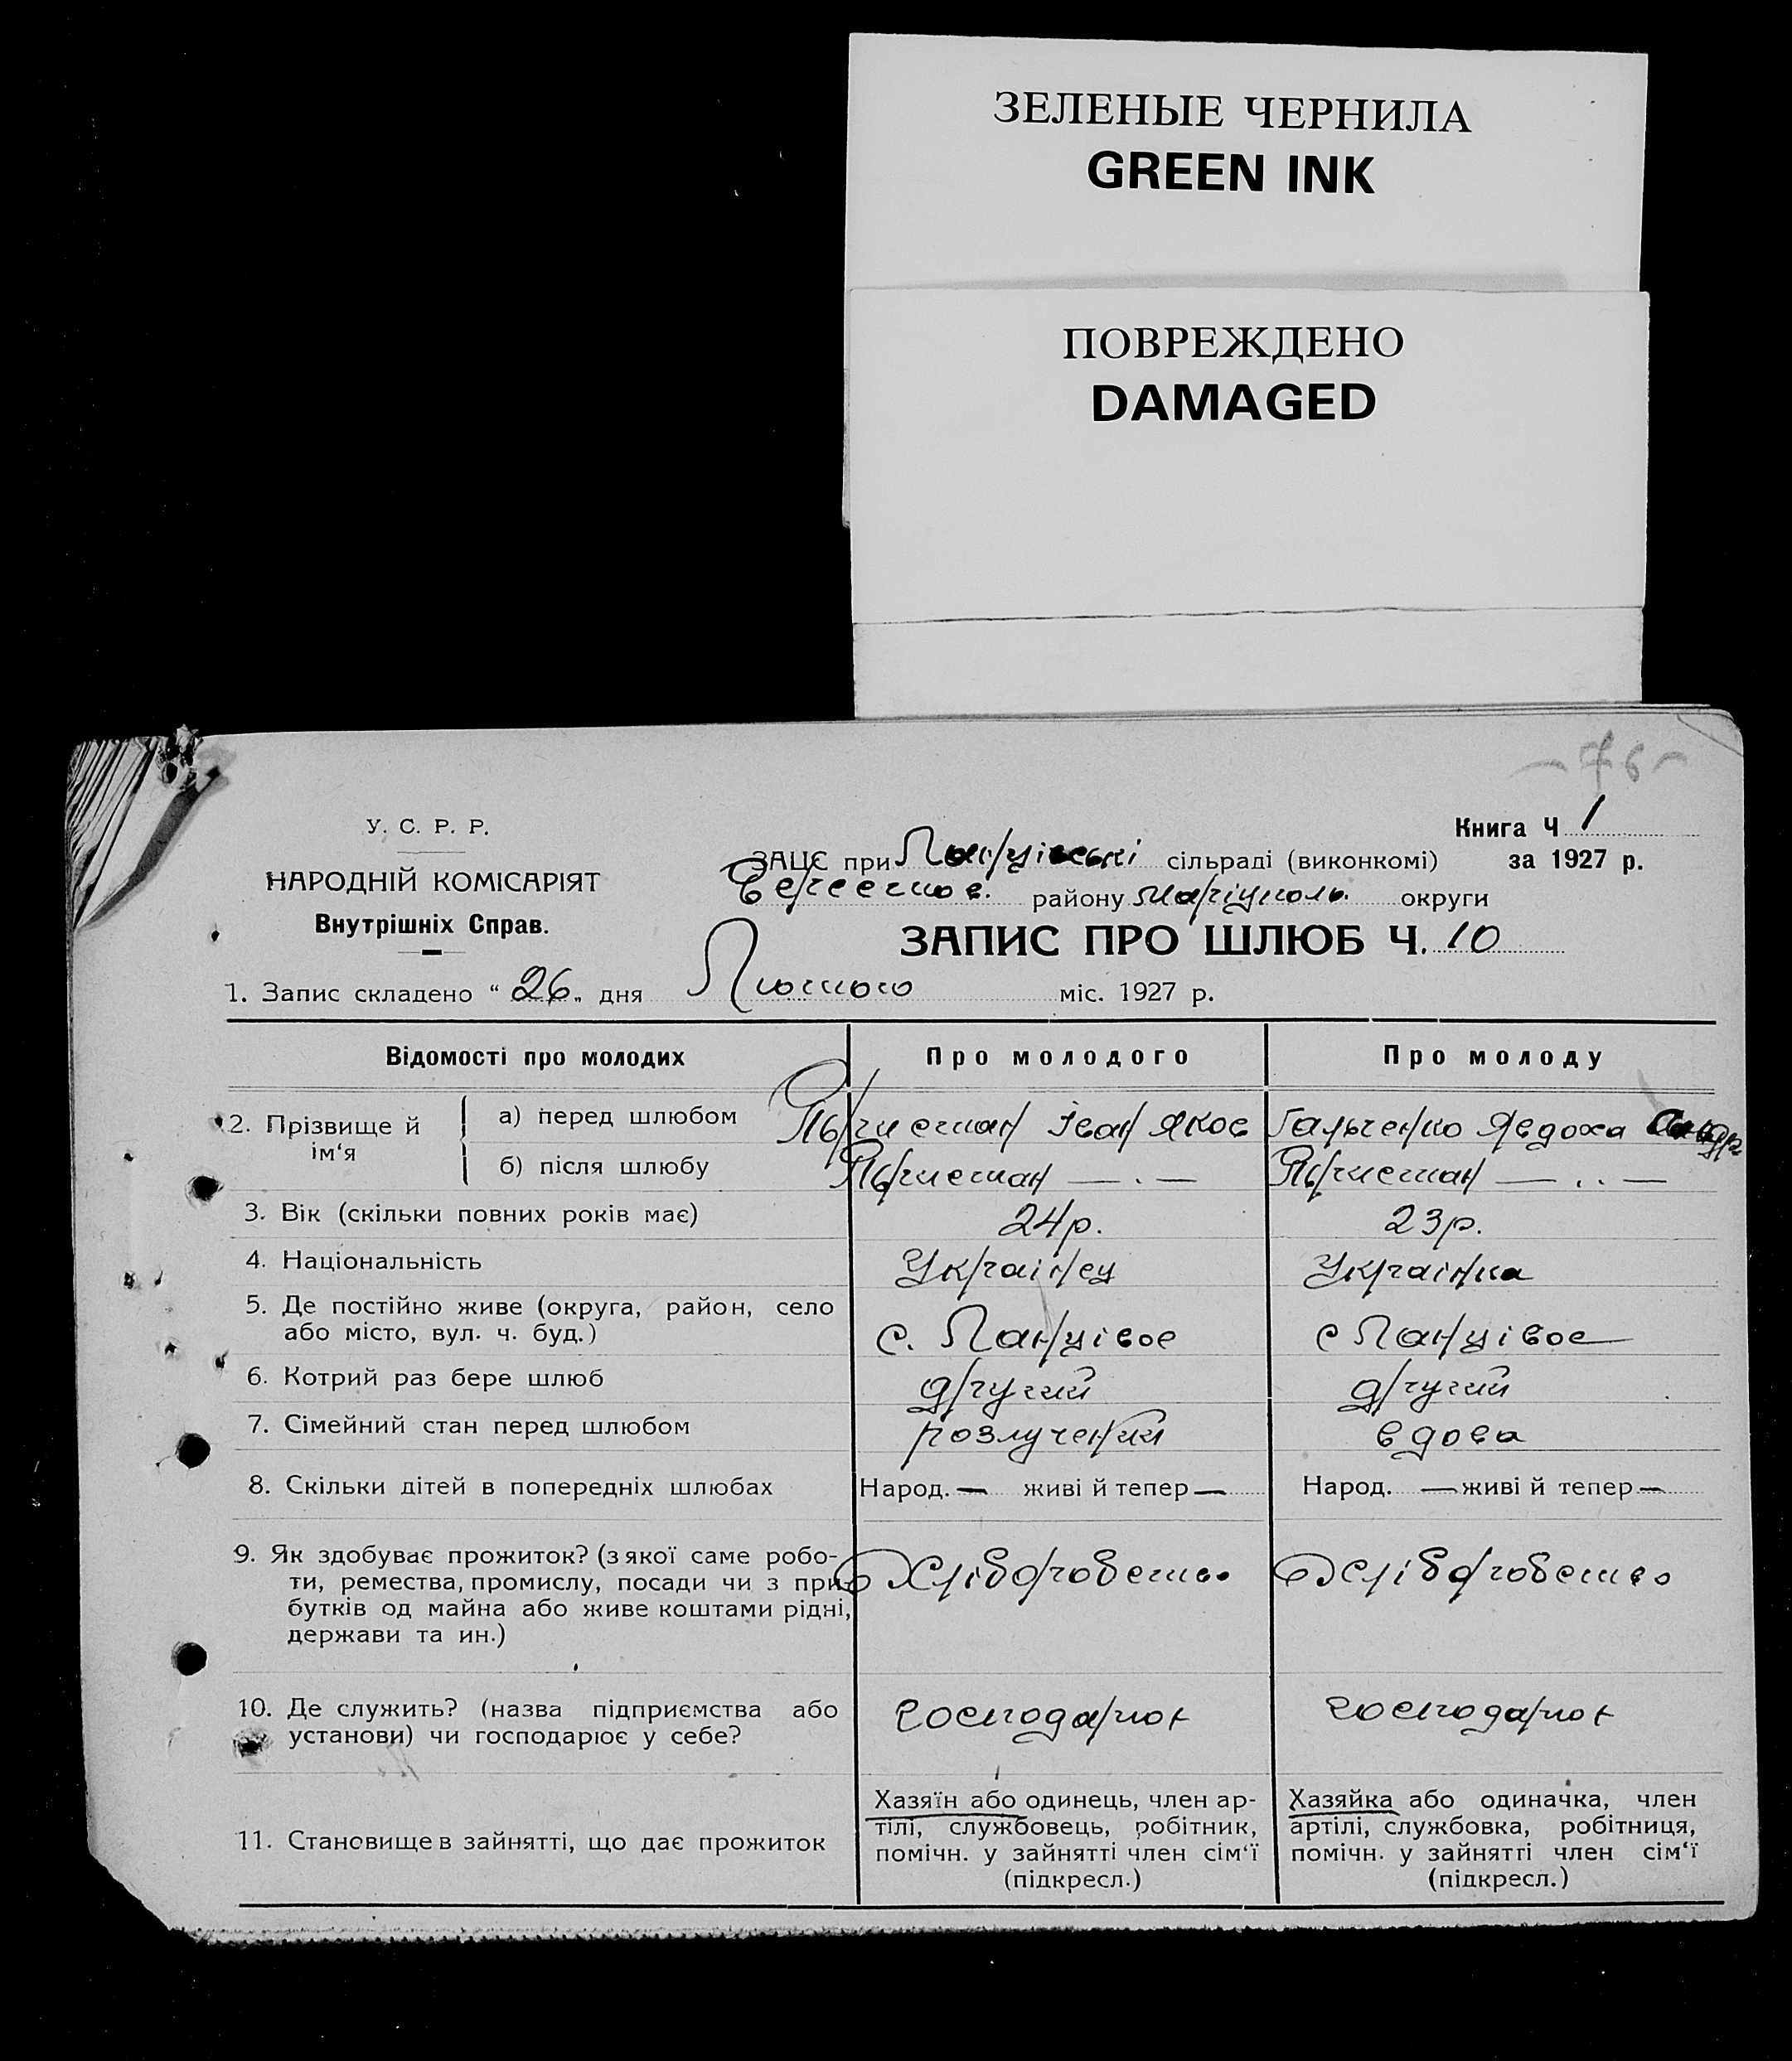 ЗЕЛЕНЫЕ ЧЕРНИЛА
GREEN INK
ПОВРЕЖДЕНО
DAMAGED
-76-
У. С. Р. Р.
НАРОДНІЙ КОМІСАРІЯТ
Внутрішніх Справ.
Книга Ч 1
за 1927 р.
ЗАЦС при сільраді (виконкомі)
району Маріуполь. округи
ЗАПИС ПРО ШЛЮБ Ч. 10
1. Запис складено “ 26 „ дня Лютого міс. 1927 р.
Відомості про молодих Про молодого Про молоду
2. Прізвище й ім‘я
а) перед шлюбом Іван Яков Гальченко Явдоха
б) після шлюбу — . — — . . —
3. Вік (скільки повних років має) 24р. 23р.
4. Національність Українец Українка
5. Де постійно живе (округа, район, село с. Ланцівое с Ланцівое
або місто, вул. ч. буд.)
6. Котрий раз бере шлюб другий другий
7. Сімейний стан перед шлюбом розлучений вдова
8. Скільки дітей в попередніх шлюбах Народ. — живі й тепер — Народ. — живі й тепер —
9. Як здобуває прожиток? (з якої саме робо- Хліборобство Хліборобство
ти, ремества, промислу, посади чи з при-
бутків од майна або живе коштами рідні,
держави та ин.)
10. Де служить? (назва підприємства або господарює господарює
установи) чи господарює у себе?
11. Становище в зайнятті, що дає прожиток
Хазяїн або одинець, член ар-
тілі, службовець, робітник,
помічн. у зайнятті член сім‘ї
(підкресл.)
Хазяйка або одиначка, член
артілі, службовка, робітниця,
помічн. у зайнятті член сім‘ї
(підкресл.)